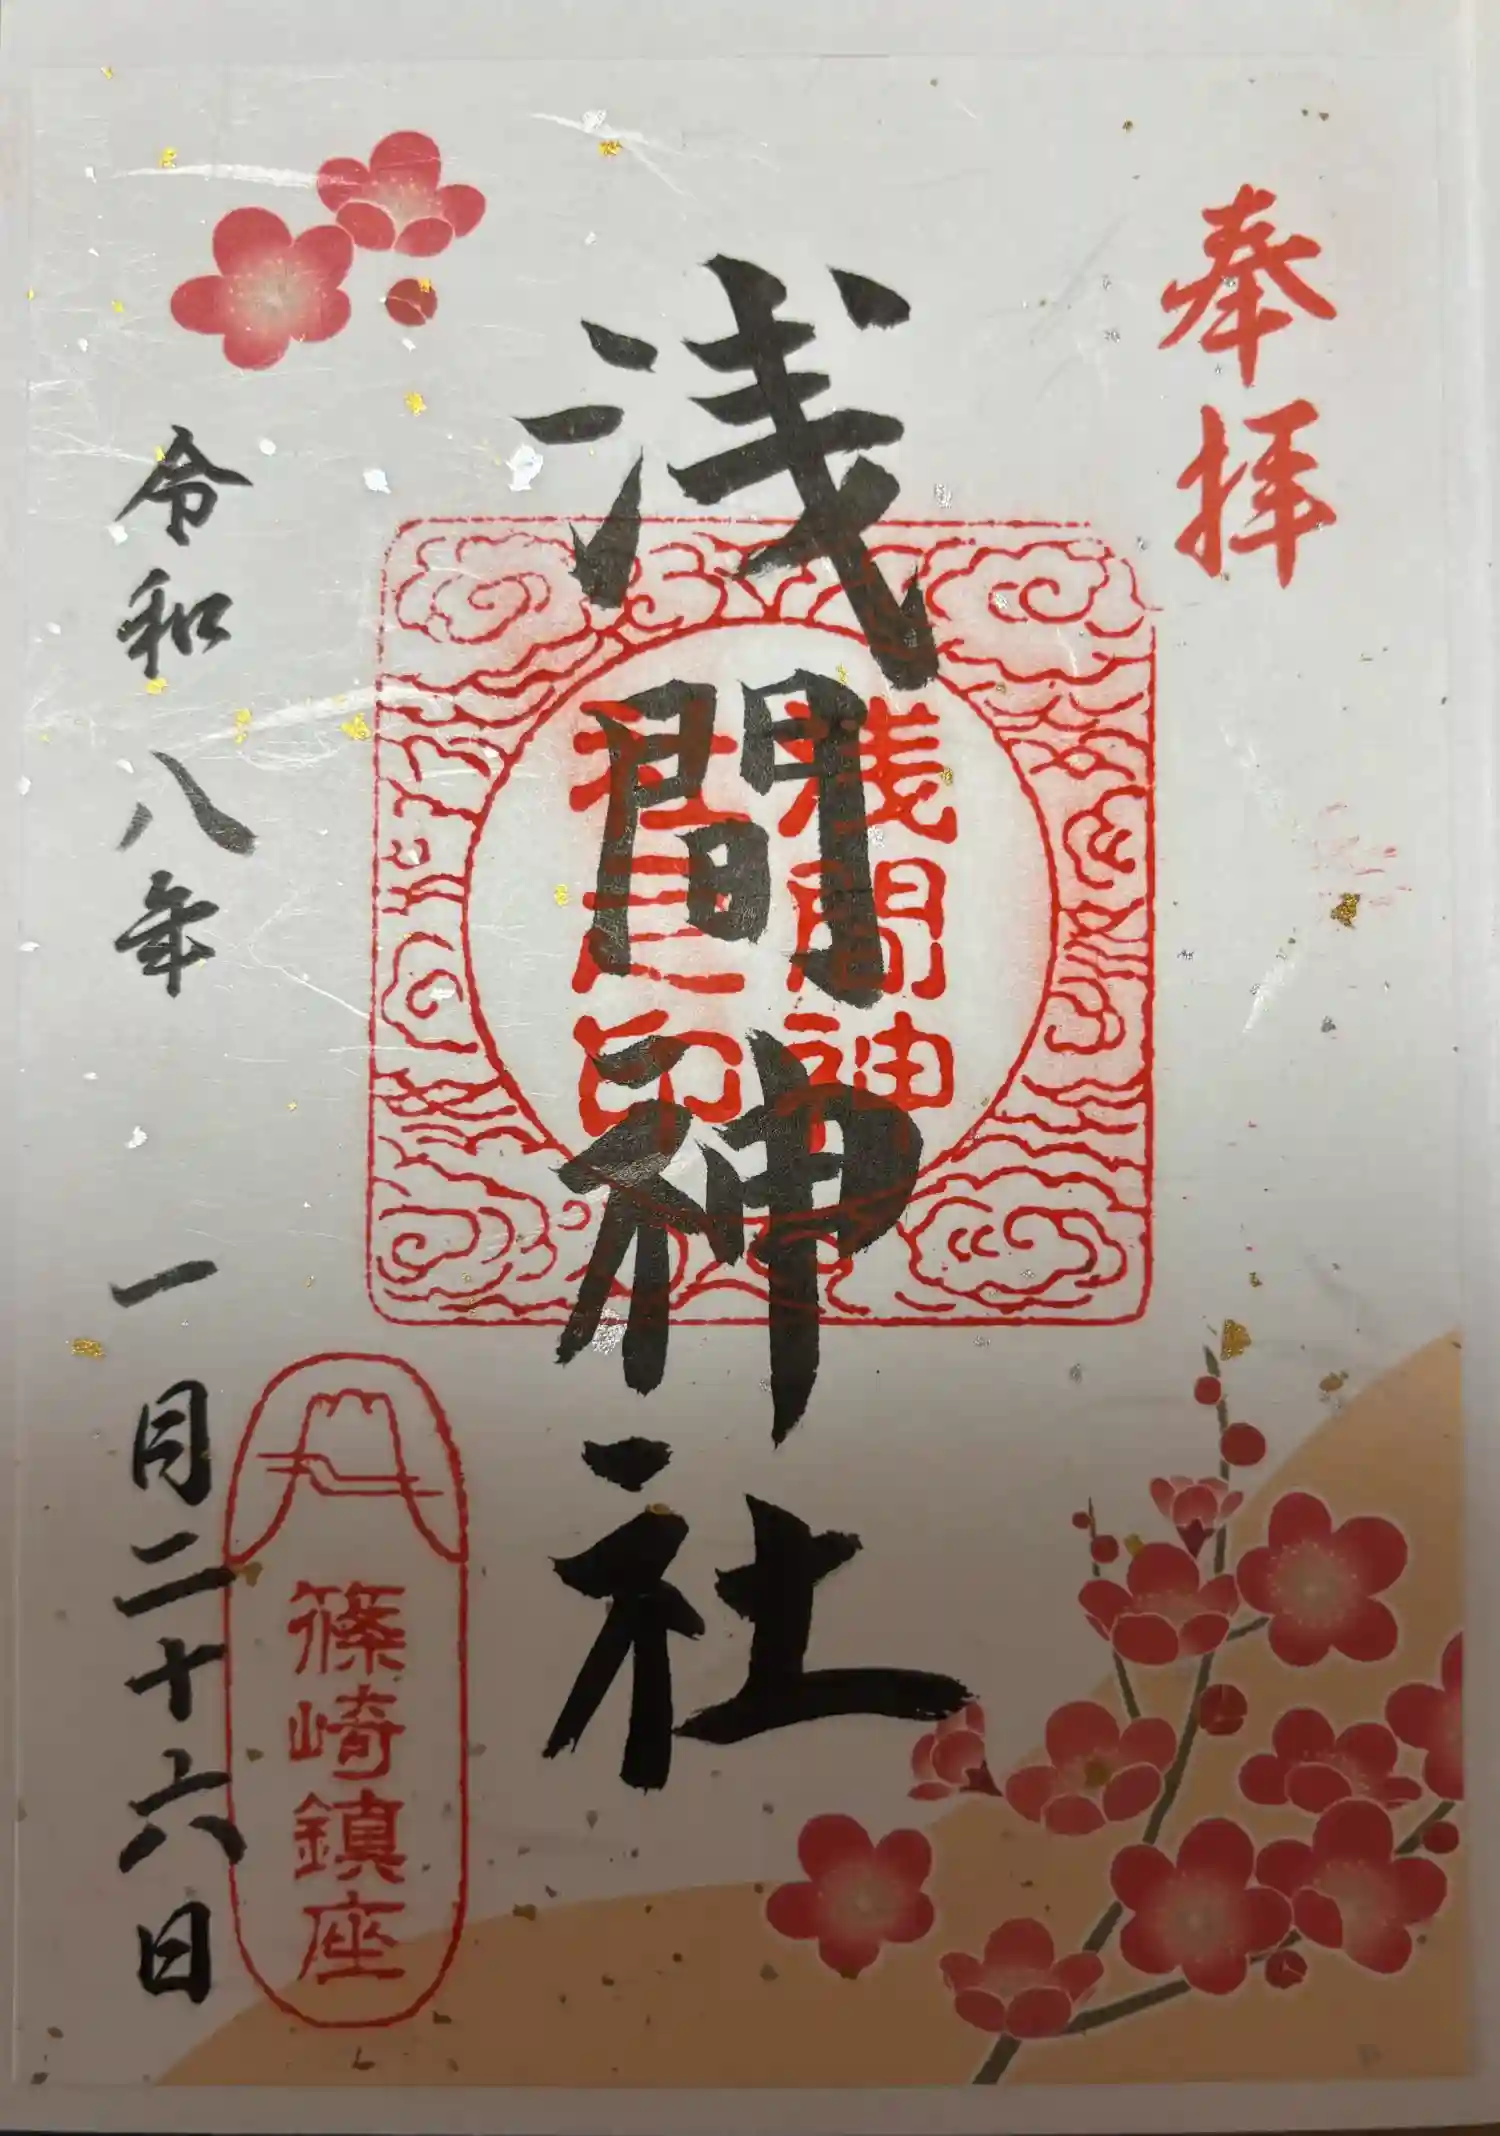 奉拝
浅間神社
浅間神
社之印
篠崎鎮座
令和八年 一月二十六日